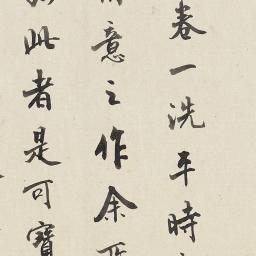 卷一洗平時
意之作余所
此者是可寶